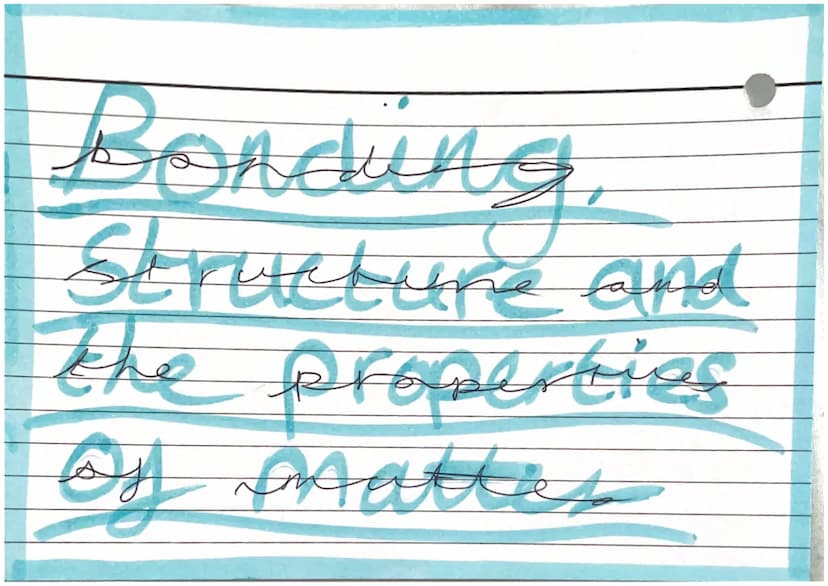 Bonding,
Structure and
the properties
of matter